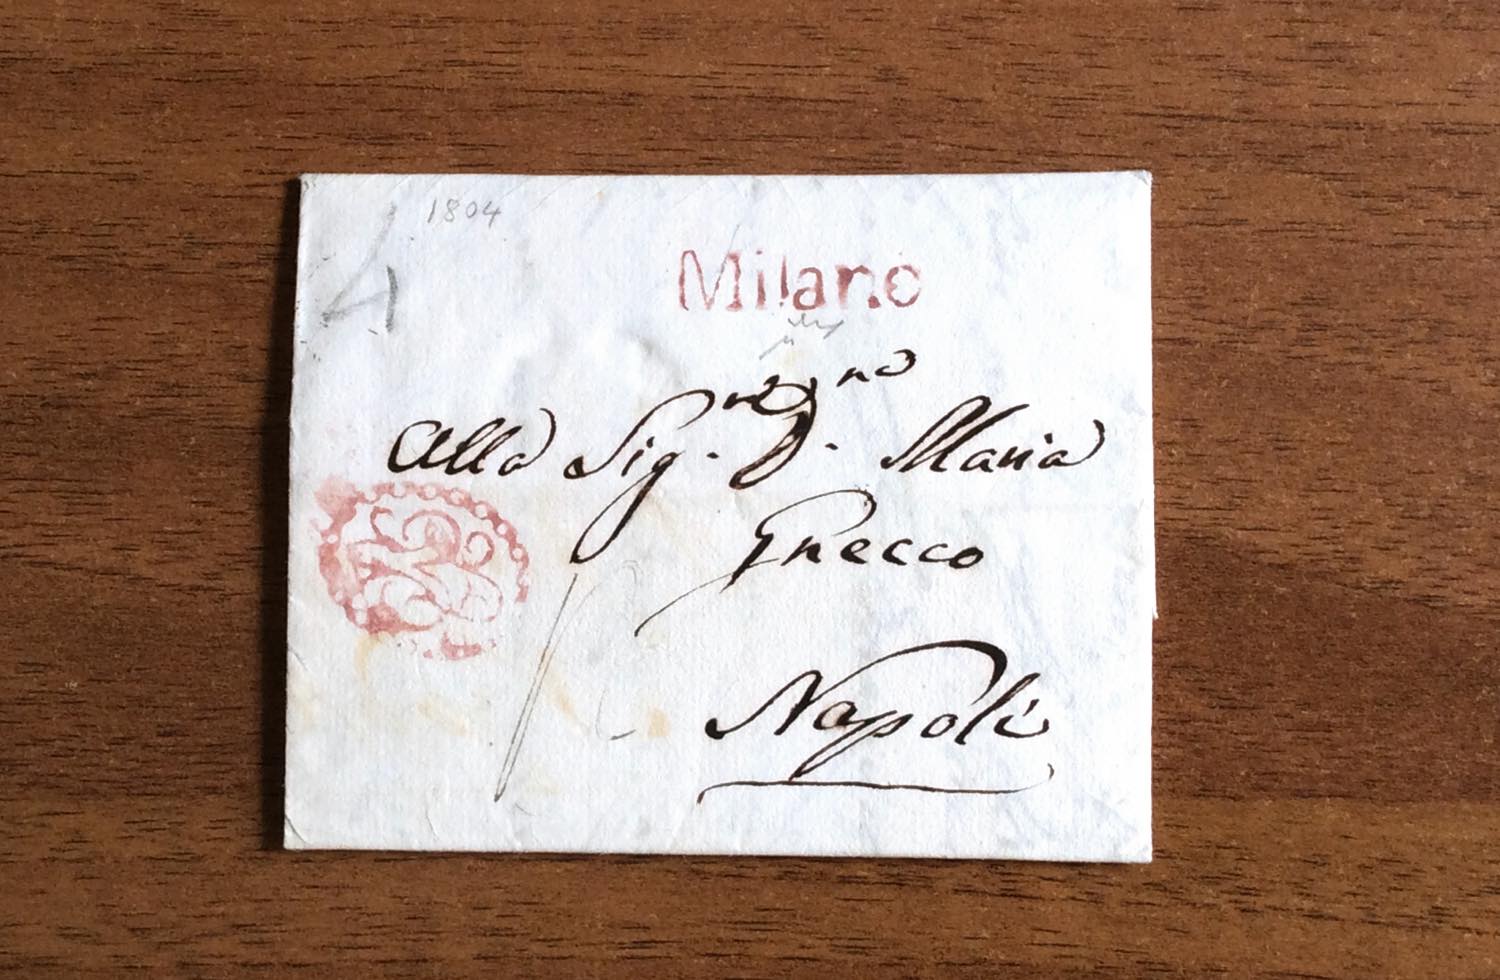 1804
Milano
Alla Sig.ra D.na Maria
Grecco
Napoli